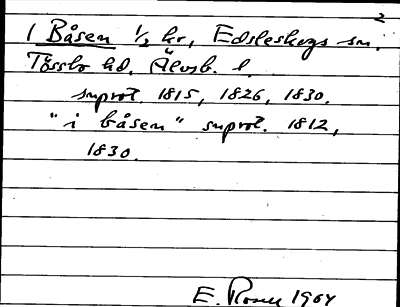 2
1 Båsen 1/2 kr, Edsleskogs sn.
Tössbo hd. Älvsb. l.
snprot. 1815, 1826, 1830.
"i båsen" snprot. 1812,
1830.
E. Rosell 1964